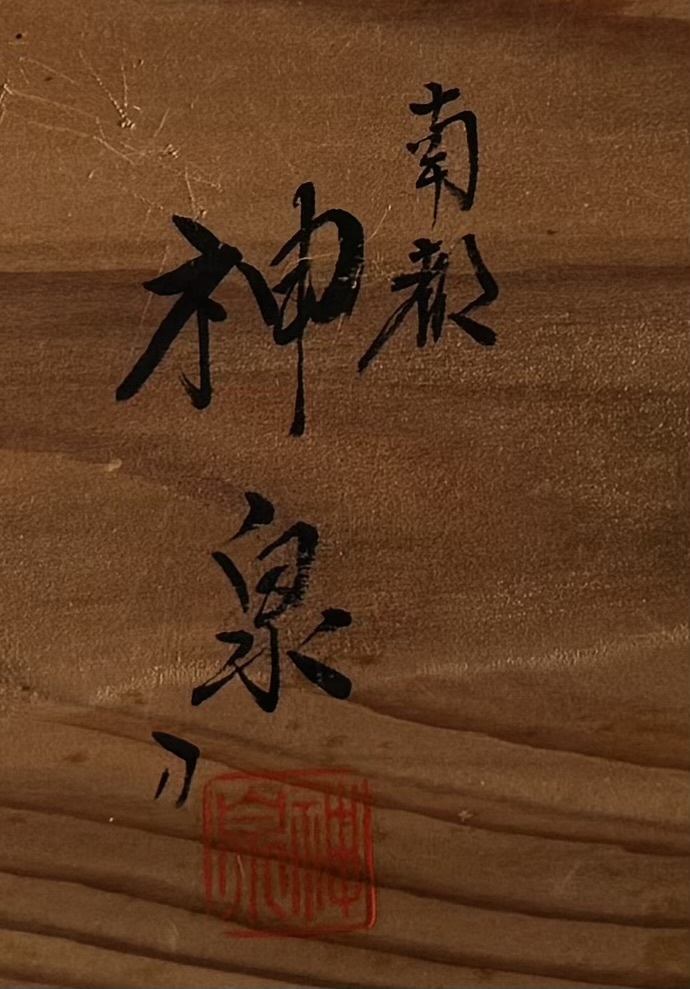 南都
神泉
神泉